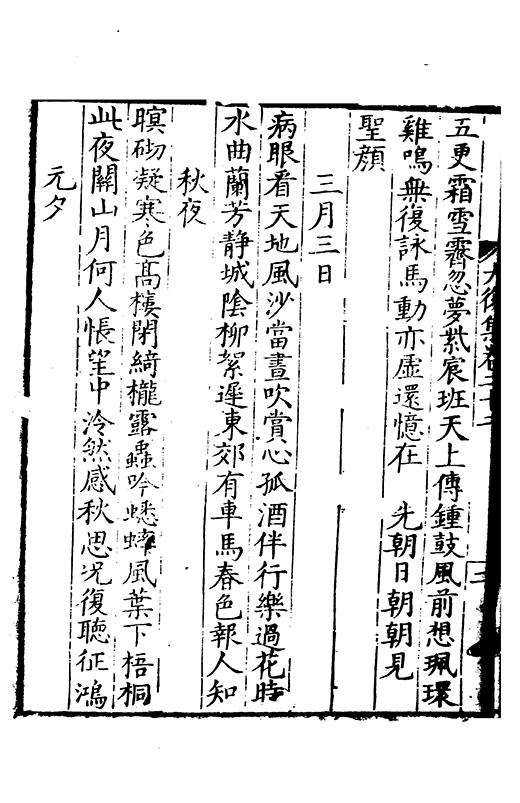 五更霜雪霽忽夢紫宸班天上傳鍾鼓風前想珮環
雞鳴無復詠馬動亦虛還憶在　先朝日朝朝見
聖顔
三月三日
病眼看天地風沙當晝吹賞心孤酒伴行樂過花時
水曲蘭芳静城陰柳絮遲東郊有車馬春色報人知
秋夜
暝砌凝寒色髙樓閉綺櫳露蟲吟蟋蟀風葉下梧桐
此夜關山月何人悵望中泠然感秋思况復聽征鴻
元夕